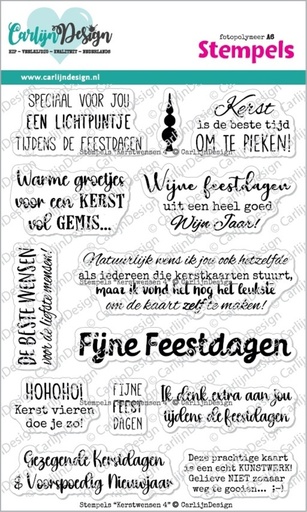 CarlijnDesign
HIP - VROLIJK(E) - KWALITEIT - NEDERLANDS
fotopolymeer A6
Stempels
www.carlijndesign.nl
SPECIAAL VOOR JOU
EEN LICHTPUNTJE
TIJDENS DE FEESTDAGEN
Kerst
is de beste tijd
OM TE PIEKEN!
Stempels "Kerstwensen 4" © CarlijnDesign
Warme groetjes
voor een KERST
vol GEMIS...
Wijne feestdagen
uit een heel goed
Wijn Jaar!
DE BESTE WENSEN
voor de liefste menden!
Natuurlijk wens ik jou ook hetzelfde
als iedereen die kerstkaarten stuurt,
maar ik vond het nog het leukste
om de kaart zelf te maken!
Stempels "Kerstwensen 4" © CarlijnDesign
Fijne Feestdagen
HOHOHO!
Kerst vieren
doe je zo!
FIJNE
FEEST
DAGEN
Ik denk extra aan jou
tijdens de feestdagen
Stempels "Kerstwensen 4" © CarlijnDesign
Gezegende Kerstdagen
& Voorspoedig Nieuwjaar
Deze prachtige kaart
is een echt KUNSTWERK!
Gelieve NIET zomaar
weg te gooien... ;-)
Stempels "Kerstwensen 4" © CarlijnDesign